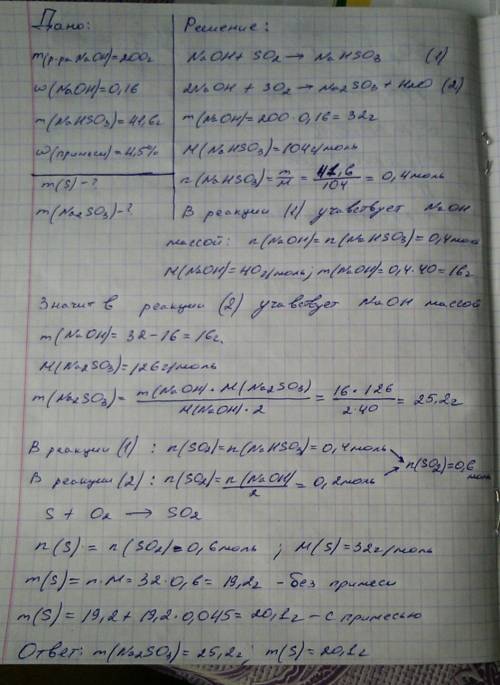 Дано:
m(р-ра NaOH)=200г
ω(NaOH)=0,16
m(NaHSO3)=41,6г
ω(примеси)=4,5%
m(S)-?
m(Na2SO3)-?
Решение:
NaOH + SO2 → NaHSO3 (1)
2NaOH + SO2 → Na2SO3 + H2O (2)
m(NaOH)=200·0,16=32г
M(NaHSO3)=104г/моль
n(NaHSO3)=m/M=41,6/104=0,4моль
В реакции (1) учавствует NaOH
массой: n(NaOH)=n(NaHSO3)=0,4моль
M(NaOH)=40г/моль; m(NaOH)=0,4·40=16г
Значит в реакции (2) учавствует NaOH массой
m(NaOH)=32-16=16г.
M(Na2SO3)=126г/моль
m(Na2SO3)=m(NaOH)·M(Na2SO3)/M(NaOH)·2=16·126/2·40=25,2г
В реакции (1): n(SO2)=n(NaHSO3)=0,4моль
В реакции (2): n(SO2)=n(NaOH)/2=0,2моль
n(SO2)=0,6 моль
S + O2 → SO2
n(S)=n(SO2)=0,6моль; M(S)=32г/моль
m(S)=n·M=32·0,6=19,2г - без примеси
m(S)=19,2+19,2·0,045=20,1г - с примесью
Ответ: m(Na2SO3)=25,2г; m(S)=20,1г